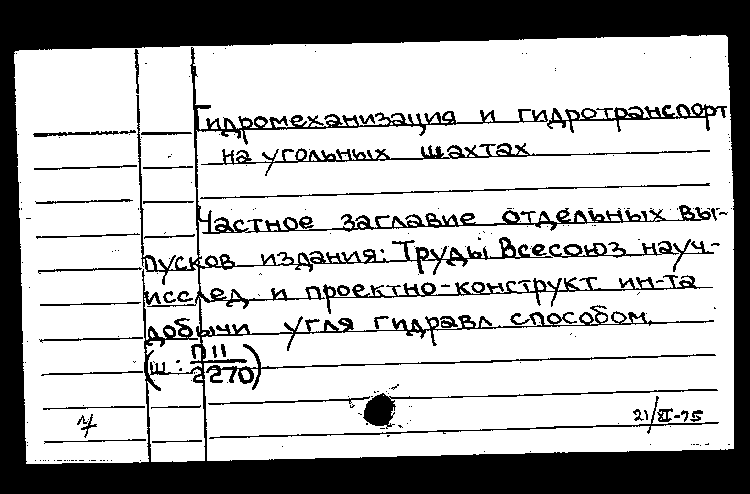 Гидромеханизация и гидротранспорт
на угольных шахтах
Частное заглавие отдельных вы-
пусков издания: Труды Всесоюз науч-
исслед и проектно-конструкт ин-та
добычи угля гидравл способом.
(ш: П11/2270)
21/XI-75